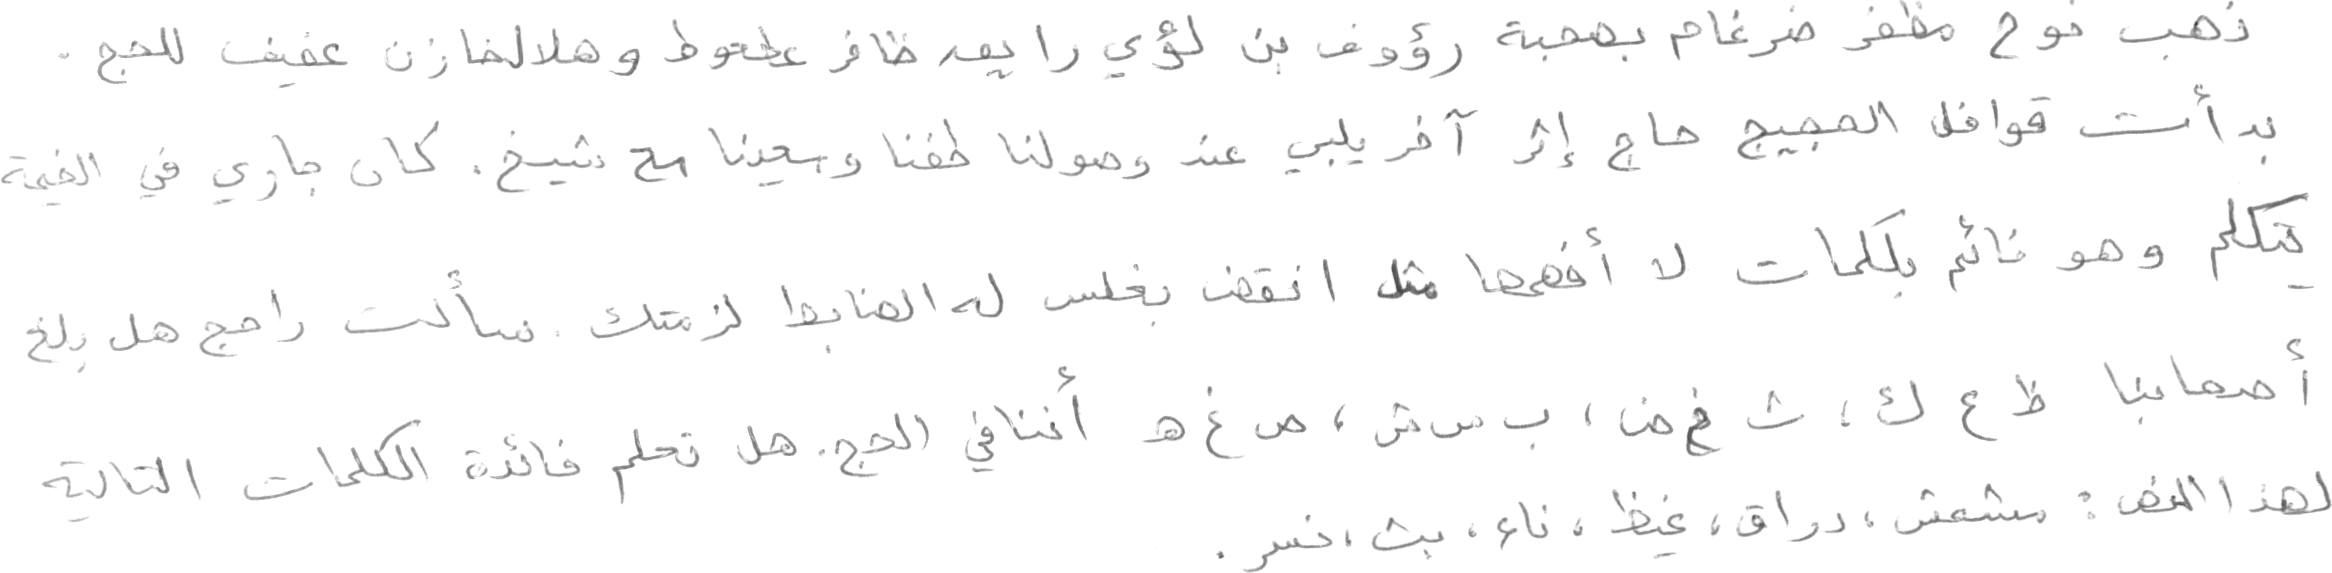 ذهب نوح مظفر ضرغام بصحبة رؤوف بن لؤي رايعه ظافر عطعوط وهلالخازن عفيف للحج.
بدأت قوافل الحجيج حاج إثر آخر يلبي عند وصولنا طفنا وسعينا مع شيخ. كان جاري في الخيمة
يتكلم وهو نائم بكلمات لا أفهمها مثل انقض بغلس له الضابط لزمتك. سألت راجح هل بلغ
أصحابنا ظ ع ك، ث غ ض، ب س ش، ص غ هـ أننا في الحج. هل تعلم فائدة الكلمات التالية
لهذا النص: مشمش، دراق، غيظ، ناء، بث، نسر.